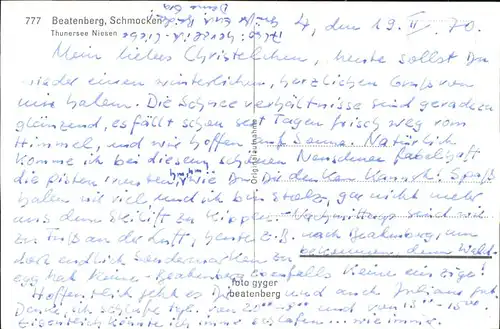 777 Beatenberg, Schmocken
Thunersee Niesen
4, den 19. II. 70.
Mein liebes Christelchen, heute sollst Du
wieder einen winterlichen, herzlichen Gruß von
uns haben. Die Schneeverhältnisse sind geradezu
glänzend, es fällt schon seit Tagen frisch weg vom
Himmel, und wir hoffen auf Sonne. Natürlich
komme ich bei diesem schönen Neuschnee fabelhaft
die Pisten runter, wie Du Dir denken kannst. Spaß
haben wir viel, und ich bin stolz, gar nicht mehr
aus dem Skilift zu kippen. Nachmittags sind wir
zu Fuß an der Luft, heute z.B. nach Beatenberg, um
doch endlich Sondermarken zu bekommen, denn
egg hat keine. Beatenberg ebenfalls keine einzige!
Hoffentlich geht es Dir und auch gut.
Denke, ich schlafe tgl. von und von
Eigentlich könnte ich immer schlafen
Originalaufnahme
foto gyger
beatenberg